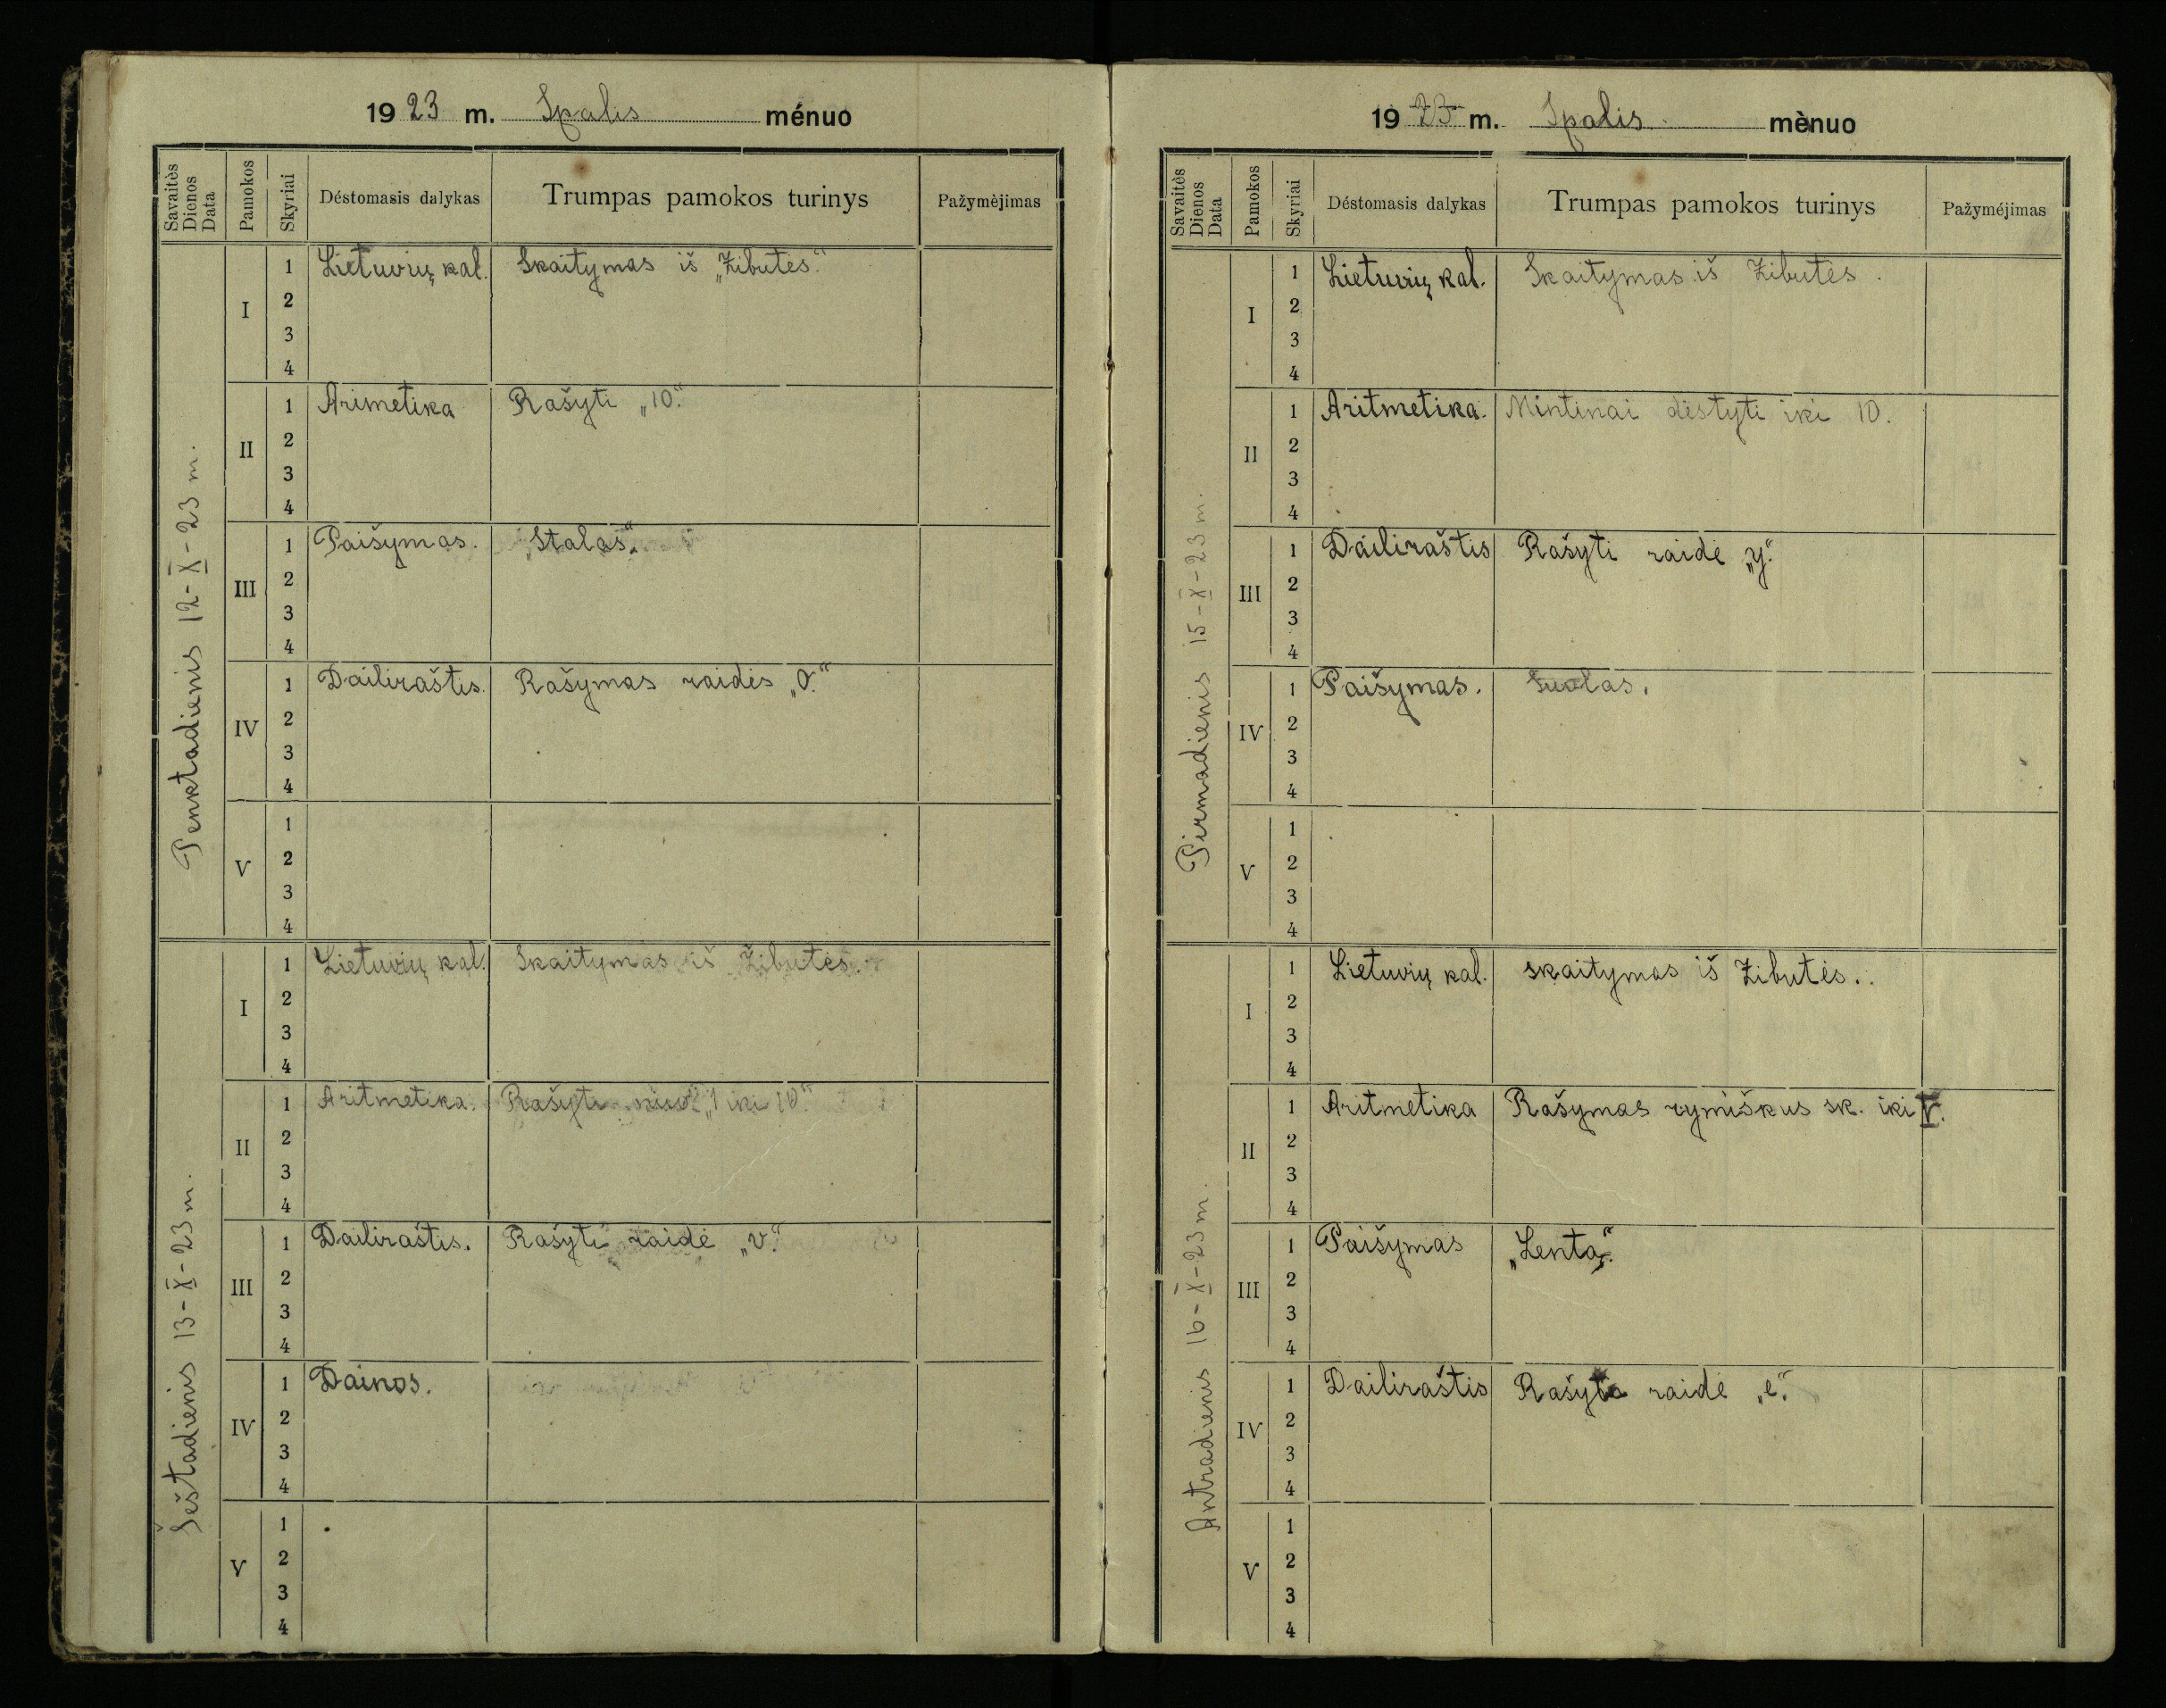 1923 m. Spalis ménuo
Savaitės Dienos Data Pamokos Skyriai Déstomasis dalykas Trumpas pamokos turinys Pažymėjimas
Penktadienis 12-X-23 m.
I
1 Lietuvių kal. Skaitymas iš „Žibutės.“
2
3
4
II
1 Arimetika Rašyti „10.“
2
3
4
III
1 Paišymas. „Stalas.“
2
3
4
IV
1 Dailiraštis. Rašymas raidės „O.“
2
3
4
V
1
2
3
4
Šeštadienis 13-X-23 m.
I
1 Lietuvių kal. Skaitymas iš Žibutės.
2
3
4
II
1 Aritmetika. Rašyti nuo „1 iki 10.“
2
3
4
III
1 Dailiraštis. Rašyti raidė „v.“
2
3
4
IV
1 Dainos.
2
3
4
V
1
2
3
4
1923 m. Spalis ménuo
Savaitės Dienos Data Pamokos Skyriai Déstomasis dalykas Trumpas pamokos turinys Pažyméjimas
Pirmadienis 15-X-23 m.
I
1 Lietuvių kal. Skaitymas iš Žibutės.
2
3
4
II
1 Aritmetika. Mintinai dėstyti iki 10.
2
3
4
III
1 Dailiraštis Rašyti raidė „y.“
2
3
4
IV
1 Paišymas. Suolas.
2
3
4
V
1
2
3
4
Antradienis 16-X-23 m.
I
1 Lietuvių kal. skaitymas iš Žibutės.
2
3
4
II
1 Aritmetika Rašymas rymiškus sk. iki V.
2
3
4
III
1 Paišymas „Lenta.“
2
3
4
IV
1 Dailiraštis Rašyti raidė „e.“
2
3
4
V
1
2
3
4